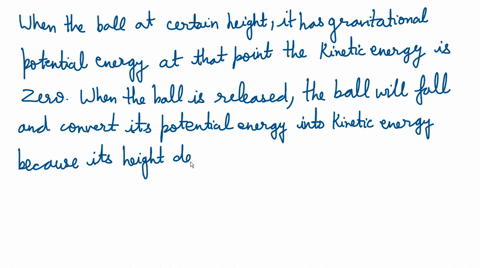 When the ball at certain height, it has gravitational
potential energy at that point the Kinetic energy is
Zero. When the ball is released, the ball will fall
and convert its potential energy into Kinetic energy
because its height de